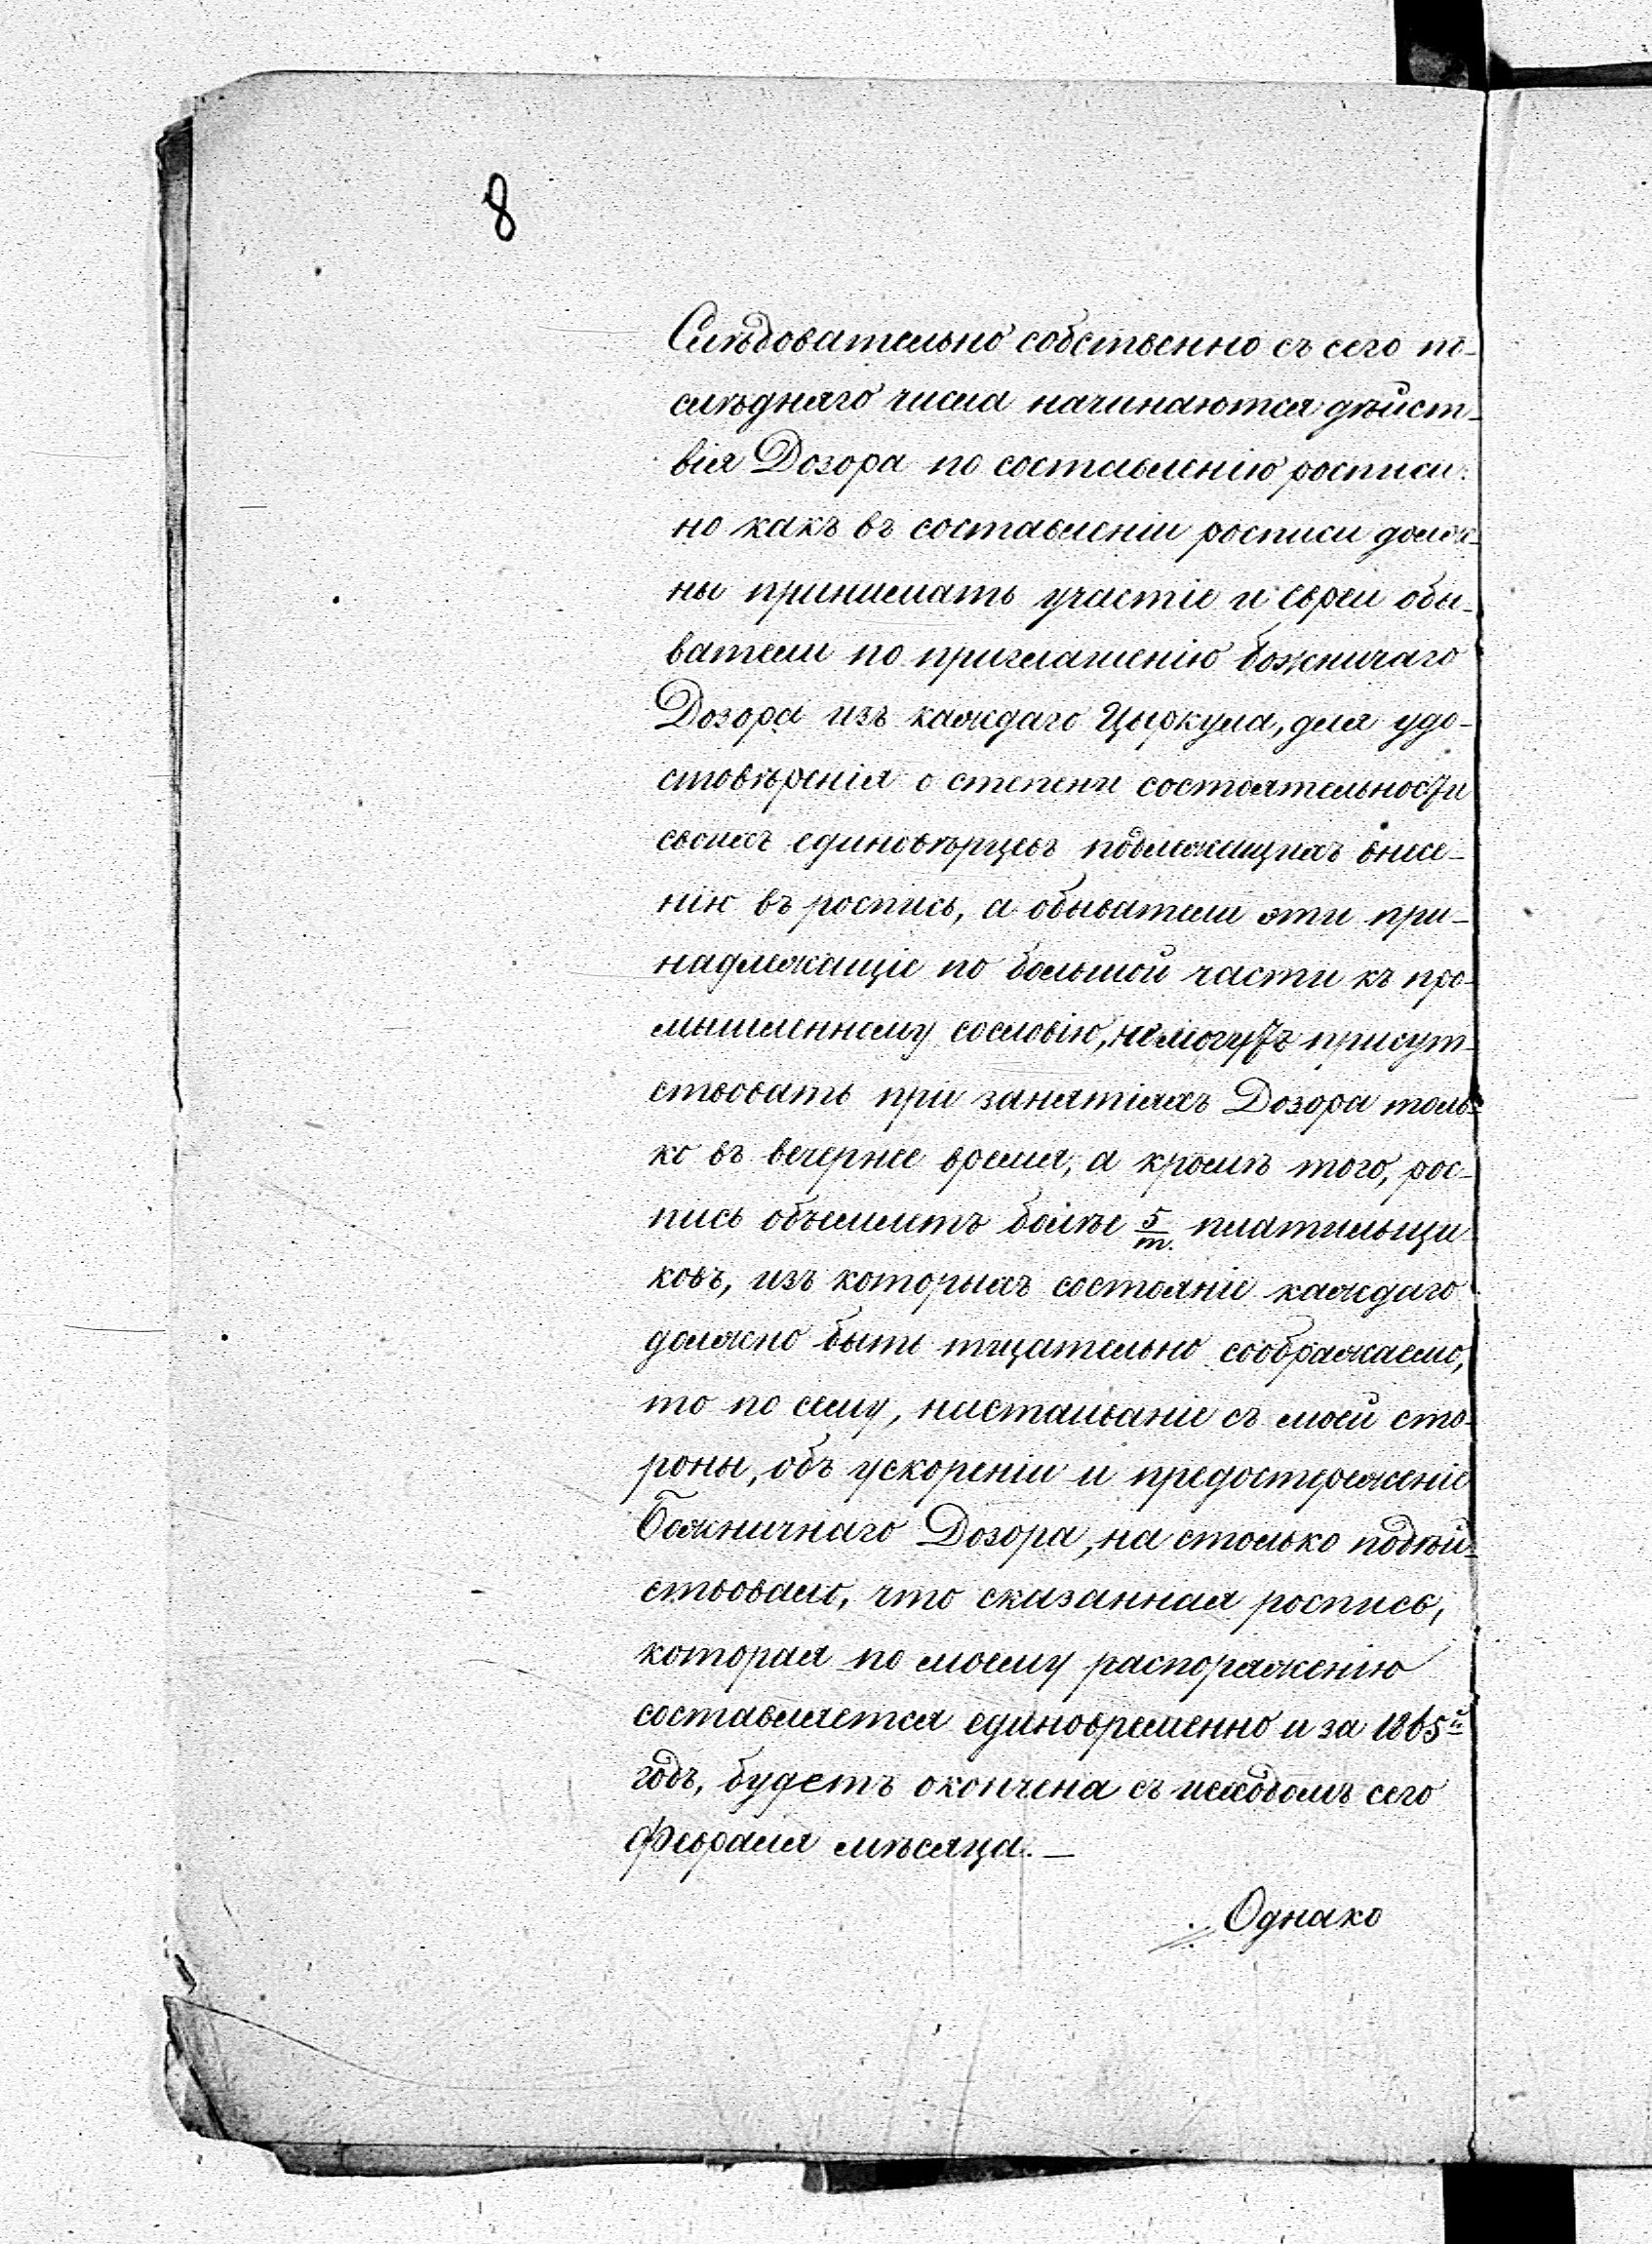 8
Слѣдовательно собственно съ сего по-
слѣдняго числа начинаются дѣйст-
вія Дозора по составленію росписи.
но какъ въ составленіи росписи долж-
ны принимать участіе и евреи обы-
ватели по приглашенію божничаго
Дозора изъ каждаго Цыркула, для удо-
стовѣренія о степени состоятельности
своихъ единовѣрцевъ подлежащихъ внесе-
нію въ роспись, а обыватели эти при-
надлежащіе по большой части къ про-
мышленному сословію, немогутъ присут-
ствовать при занятіяхъ Дозора толь-
ко въ вечернее время, а кромѣ того, рос-
пись объемлетъ болѣе 5/т. плательщи-
ковъ, изъ которыхъ состояніе каждаго
должно быть тщательно соображаемо,
то по сему, настаиваніе съ моей сто-
роны, объ ускореніи и предостереженіе
Божничнаго Дозора, на столько подѣй-
ствовало, что сказанная роспись,
которая по моему распоряженію
составляется единовременно и за 1865й
годъ, будетъ окончена съ исходомъ сего
Февраля мѣсяца. —
Однако